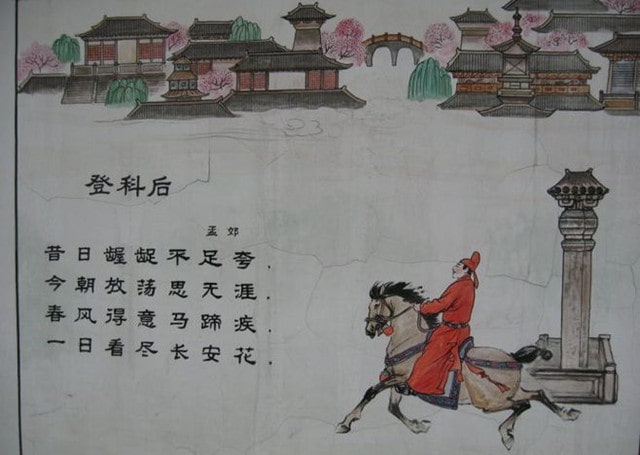 登科后
孟郊
昔日龌龊不足夸.
今朝放荡思无涯.
春风得意马蹄疾.
一日看尽长安花.